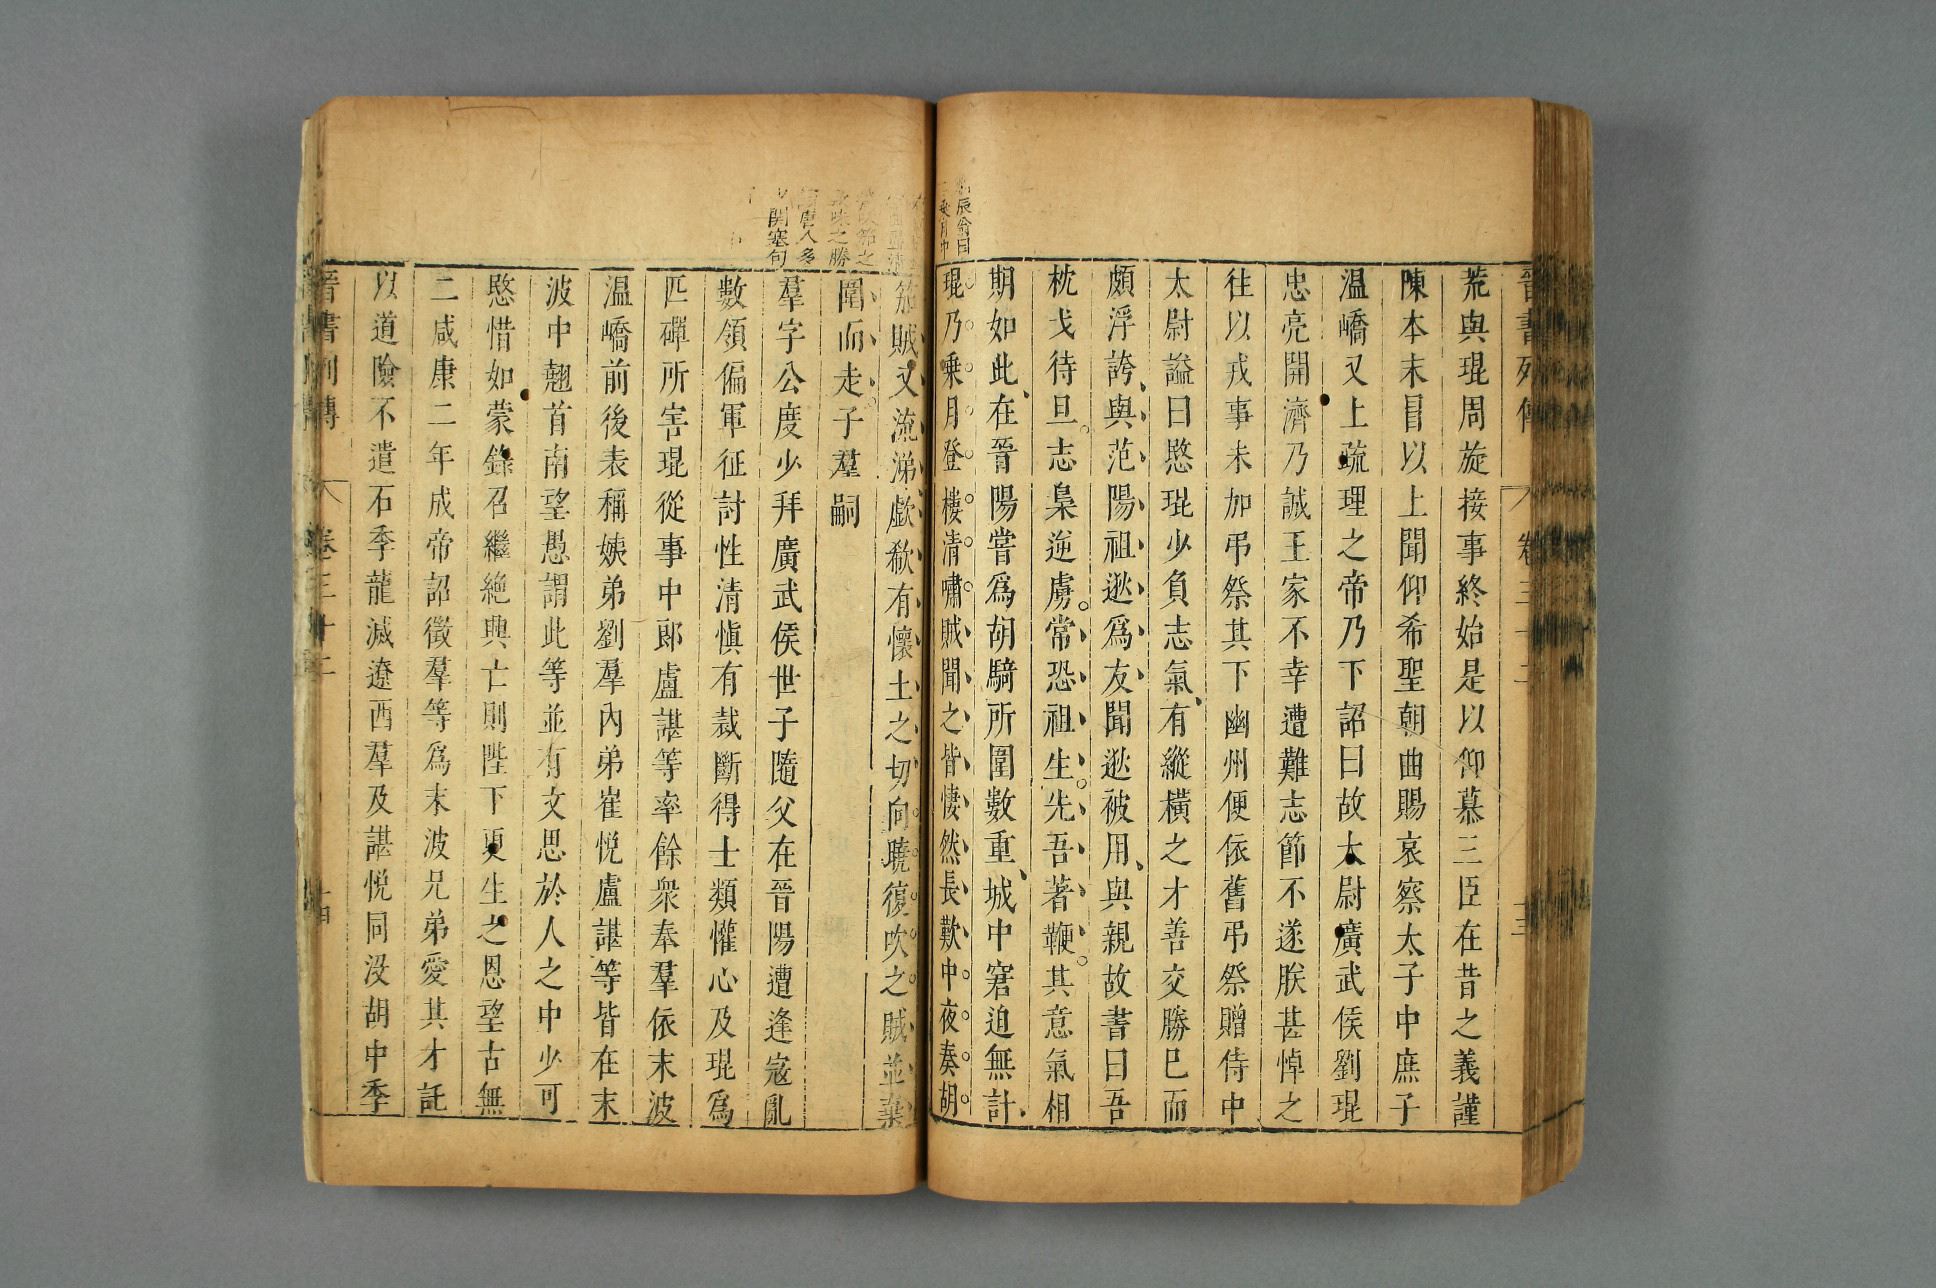 晉書列傳 卷三十二 十三
荒與琨周旋接事終始是以仰慕三臣在昔之義謹
陳本末冒以上聞仰希聖朝曲賜哀察太子中庶子
温嶠又上疏理之帝乃下詔曰故太尉廣武侯劉琨
忠亮開濟乃誠王家不幸遭難志節不遂朕甚悼之
往以戎事未加弔祭其下幽州便依舊弔祭贈侍中
太尉謚曰愍琨少負志氣有縱橫之才善交勝巳而
頗浮誇與范陽祖逖爲友聞逖被用與親故書曰吾
枕戈待旦志梟逆虜常恐祖生先吾著鞭其意氣相
期如此在晉陽嘗爲胡騎所圍數重城中窘迫無計
琨乃乗月登樓清嘯賊聞之皆悽然長歎中夜奏胡
笳賊又流涕歔欷有懷土之切向曉復吹之賊並棄
圍而走子羣嗣
羣字公度少拜廣武侯世子隨父在晉陽遭逢寇亂
數領偏軍征討性清愼有裁斷得士類懽心及琨爲
匹磾所害琨從事中郎盧諶等率餘衆奉羣依末波
温嶠前後表稱姨弟劉羣內弟崔悅盧諶等皆在末
波中翹首南望愚謂此等並有文思於人之中少可
愍惜如蒙錄召繼絶興亡則陛下更生之恩望古無
二咸康二年成帝詔徵羣等爲末波兄弟愛其才託
以道險不遣石季龍滅遼西羣及諶悅同没胡中季
晉書列傳 卷三十二 十四